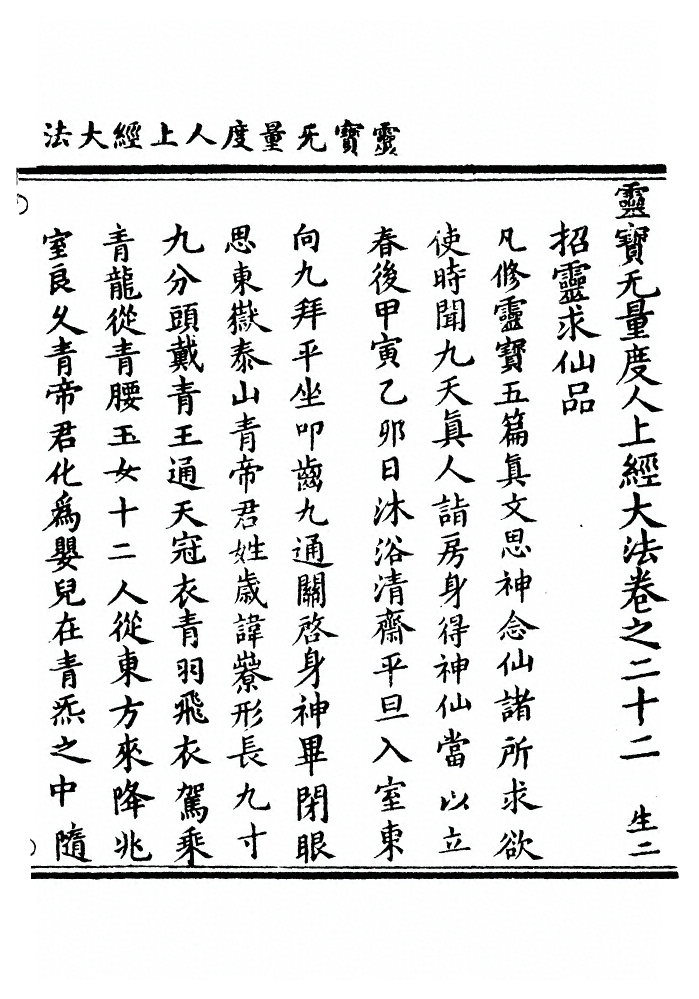 靈寳无量度人上經大法
靈寳无量度人上經大法卷之二十二 生二
招靈求仙品
凡修靈寳五篇眞文思神念仙諸所求欲
使時聞九天眞人詣房身得神仙當以立
春後甲寅乙夘日沐浴清齋平旦入室東
向九拜平坐叩齒九通關啓身神畢閉眼
思東嶽泰山青帝君姓歳諱藔形長九寸
九分頭戴青王通天冠衣青羽飛衣駕乘
青龍從青腰玉女十二人從東方來降兆
室良乆青帝君化爲嬰兒在青炁之中隨